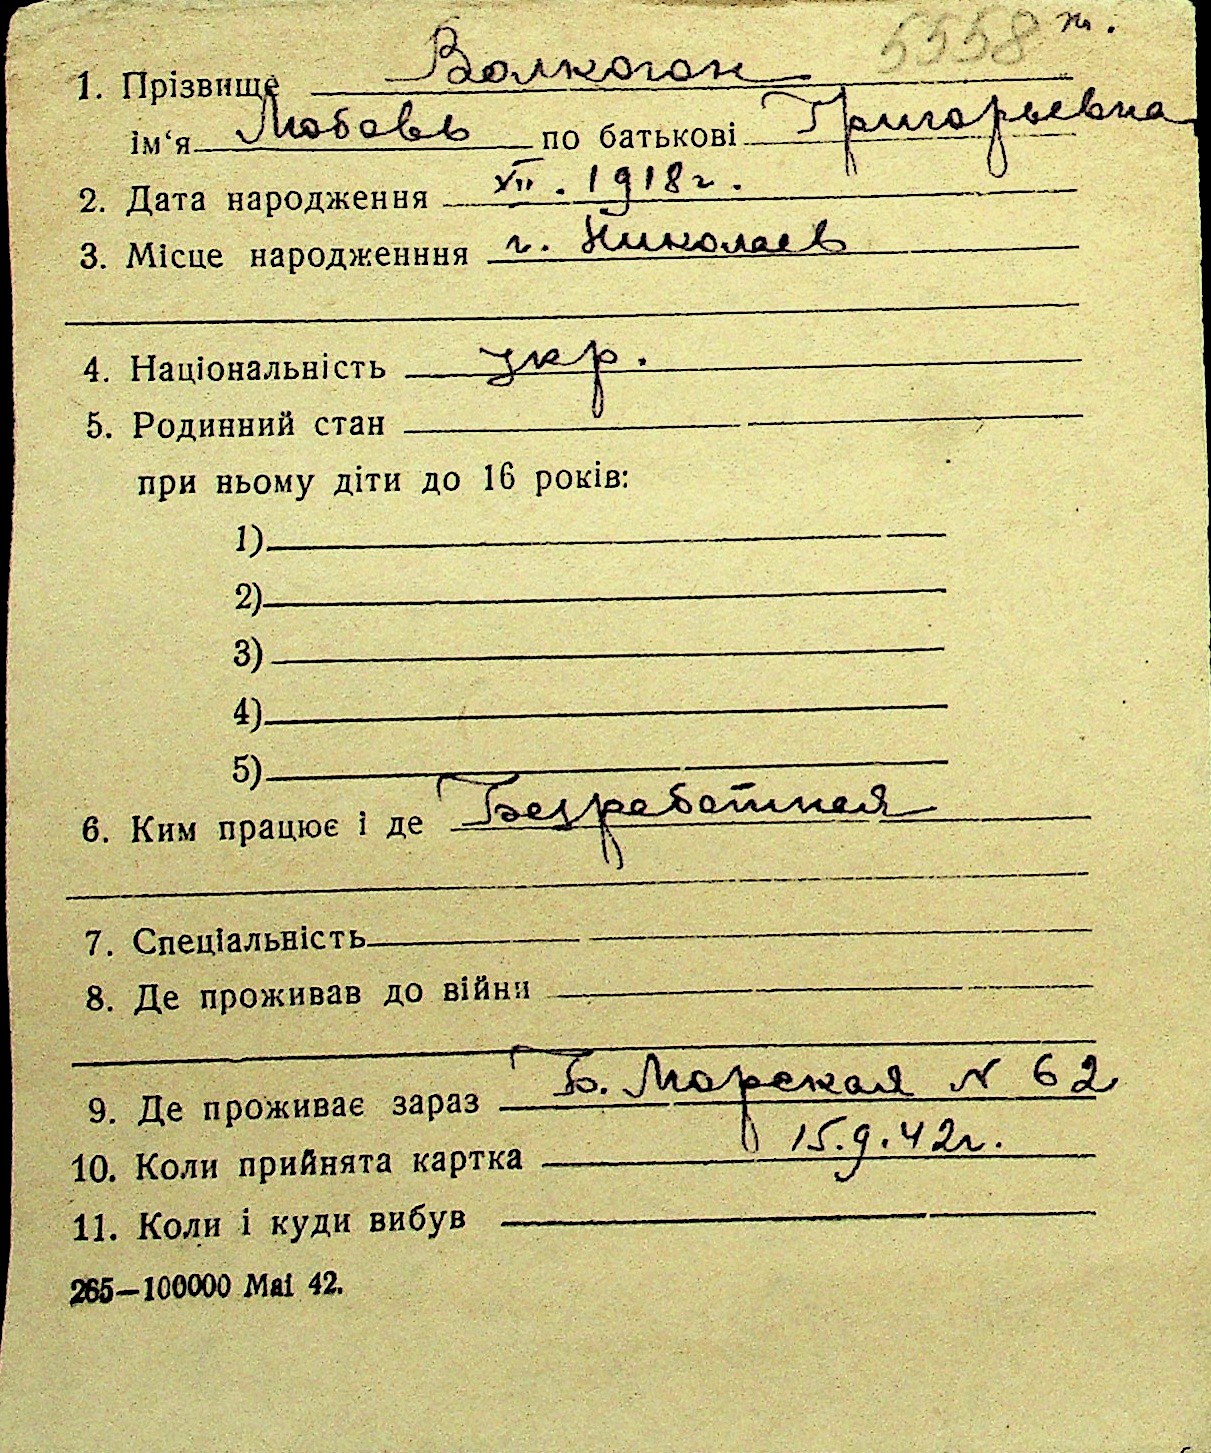 5558 п.
1. Прізвище Волкогон
ім‘я Любовь по батькові Григорьевна
2. Дата народження VII. 1918г.
3. Місце народженння г. Николаев
4. Національність укр.
5. Родинний стан
при ньому діти до 16 років:
1)
2)
3)
4)
5)
6. Ким працює і де Безработная
7. Спеціальність
8. Де проживав до війни
9. Де проживає зараз Б. Морская N 62
10. Коли прийнята картка 15.9.42г.
11. Коли і куди вибув
265—100000 Mai 42.